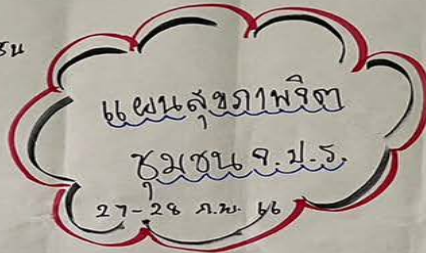 แผนสุขภาพจิต
ชุมชน จ.ป.ร.
27-28 ก.พ. 66